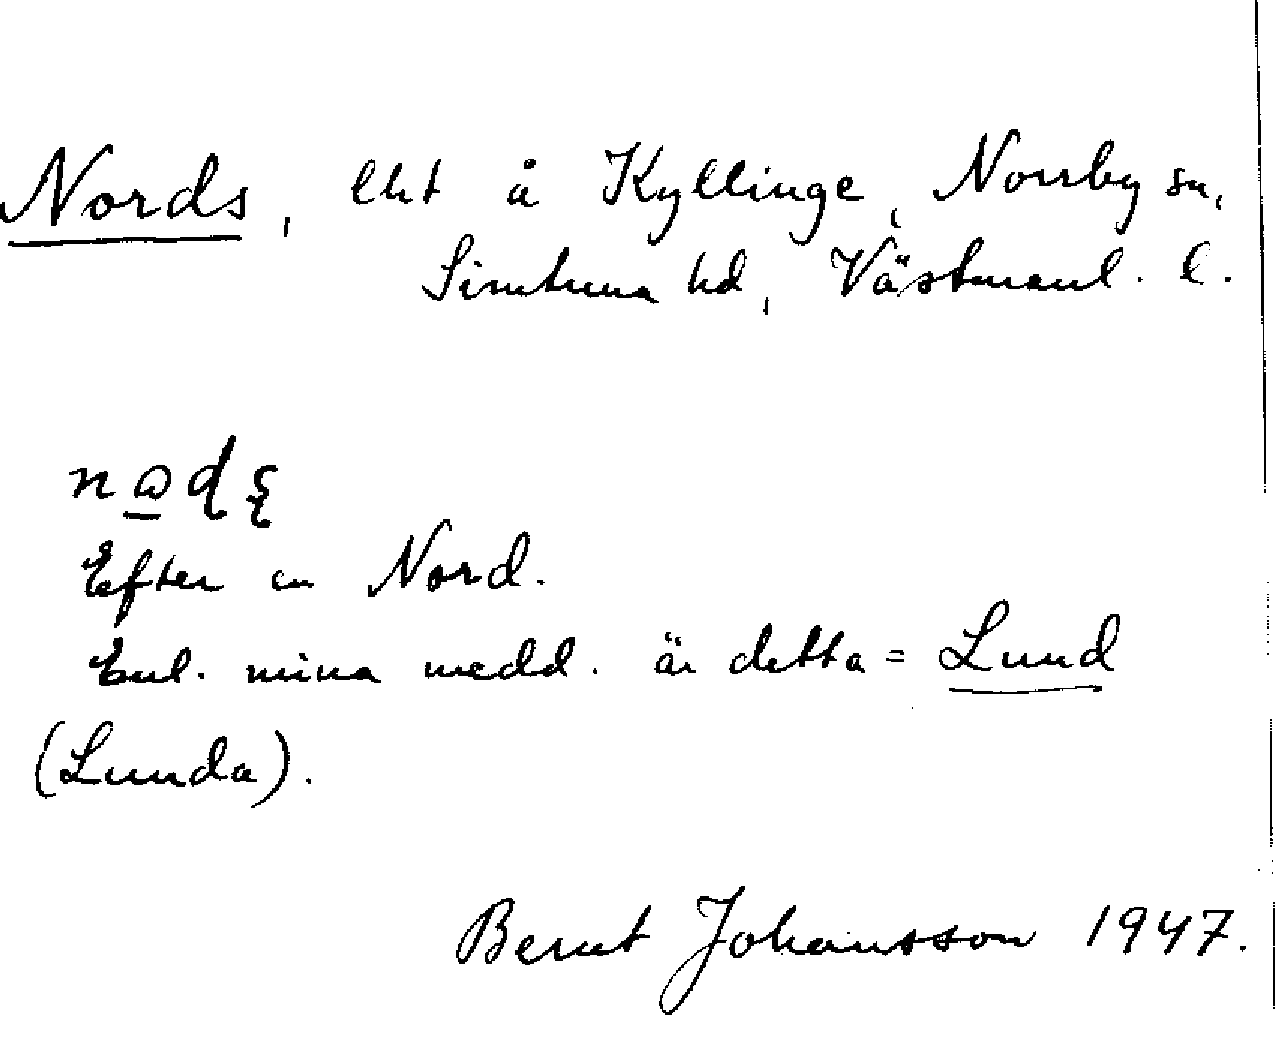 Nords, lht å Kyllinge, Norrby sn,
Simtuna hd, Västmanl. l.
Efter en Nord.
Enl. mina medd. är detta = Lund
(Lunda).
Bernt Johansson 1947.